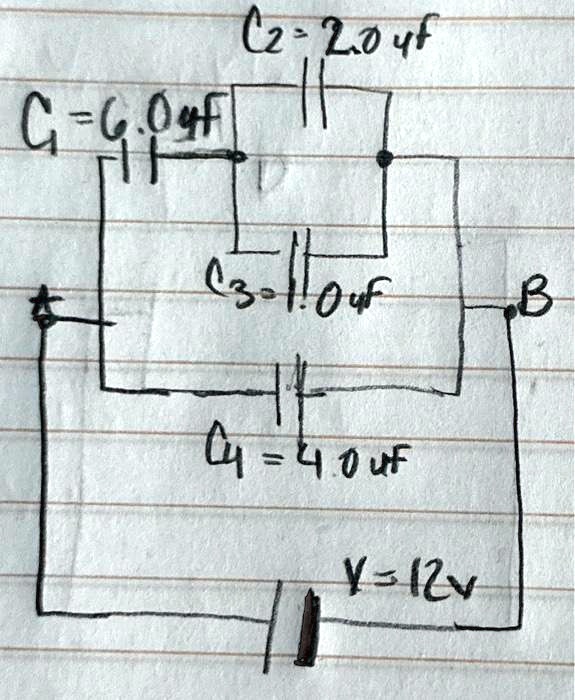 C2 = 2.0 uf
C1 = 6.0 uf
D
C3 = 1.0 uf
A
B
C4 = 4.0 uf
V = 12v